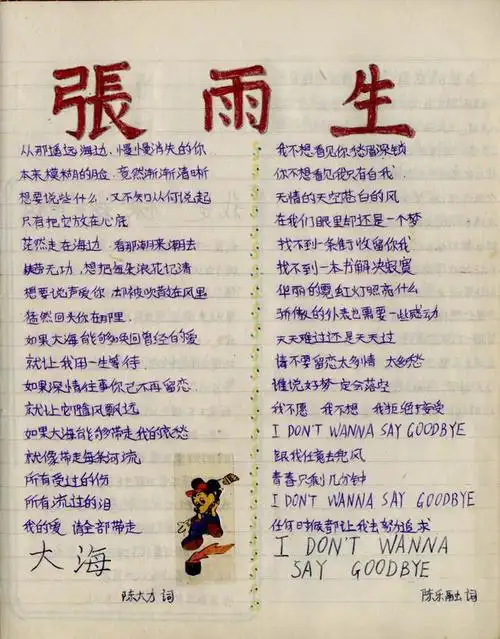 張雨生
从那遥远海边 慢慢消失的你
本来模糊的脸 竟然渐渐清晰
想要说些什么 又不知从何说起
只有把它放在心底
茫然走在海边 看那潮来潮去
徒劳无功,想把每朵浪花记清
想要说声爱你 却被吹散在风里
猛然回头你在那里
如果大海能够唤回曾经的爱
就让我用一生等待
如果深情往事你已不再留恋
就让它随风飘远
如果大海能够带走我的哀愁
就像带走每条河流
所有受过的伤
所有流过的泪
我的爱 请全部带走
大海
陈大力 词
我不想看见你愁眉深锁
你不想看见我只有自我
无情的天空苍白的风
在我们眼里却还是一个梦
找不到一条街收留你我
找不到一本书解决寂寞
华丽的霓虹灯照亮什么
骄傲的外表也需要一些感动
天天难过还是天天过
请不要留恋太多情 太多愁
谁说好梦一定会落空
我不愿 我不想 我拒绝接受
I DON'T WANNA SAY GOODBYE
跟我任意去兜风
青春只剩几分钟
I DON'T WANNA SAY GOODBYE
任何时候都让我去努力追求
I DON'T WANNA
SAY GOODBYE
陈乐融 词